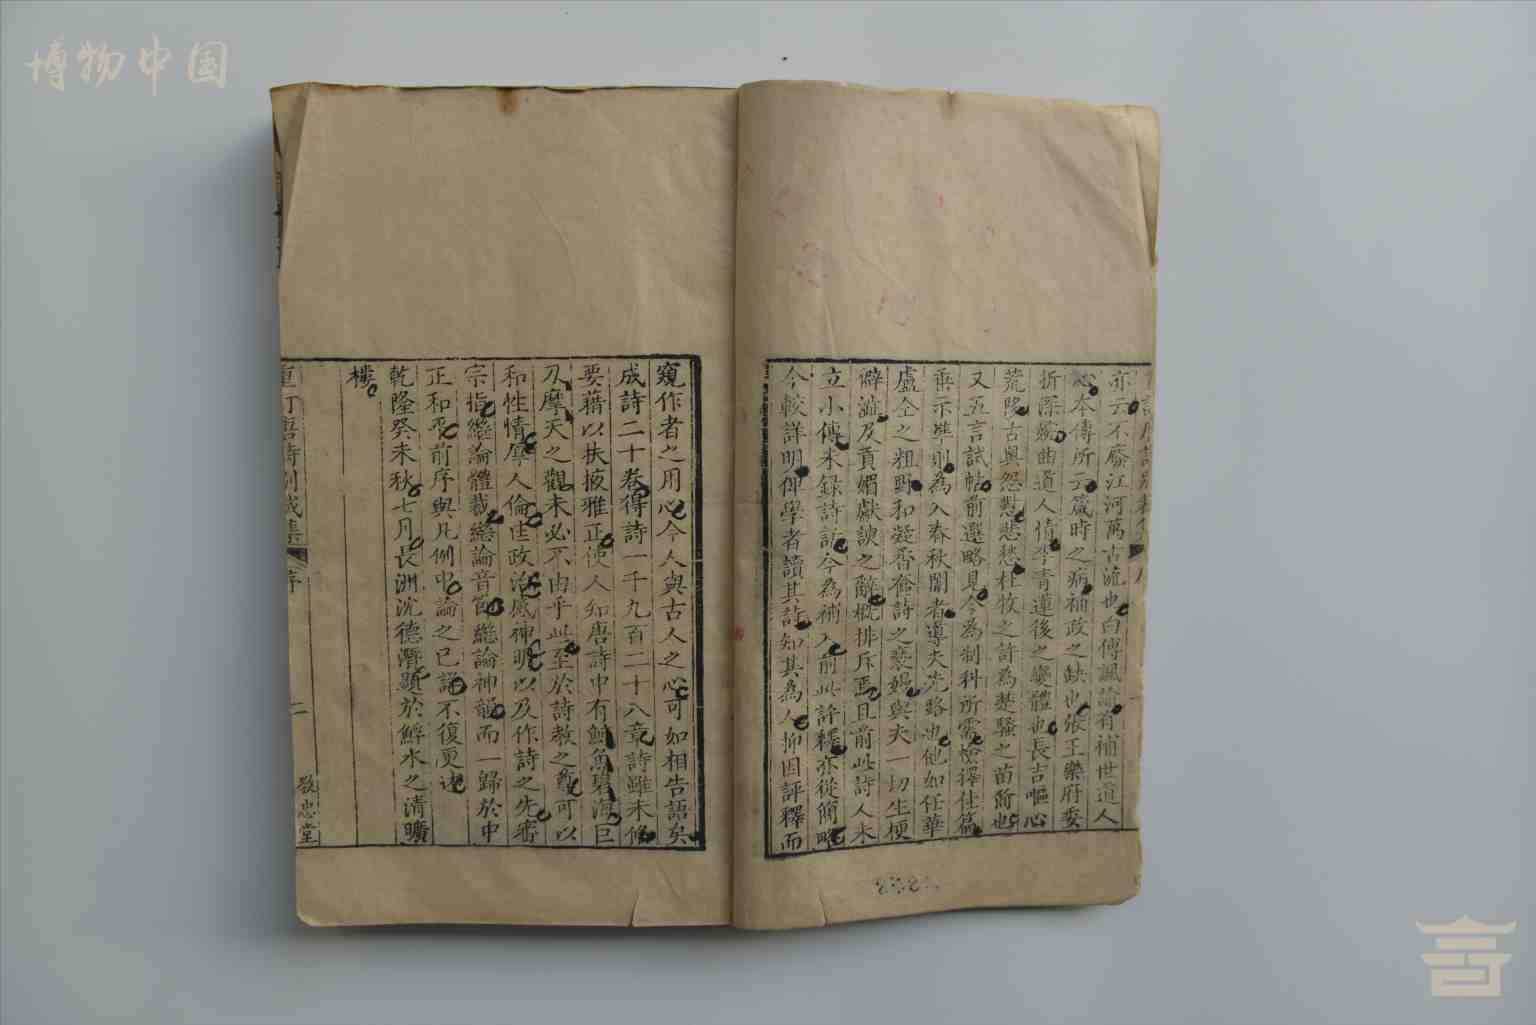 博物中国
亦云不廢江河萬古流也白傅諷諭有補世道人
心本傳所云箴時之病補政之缺也張王樂府委
折深婉曲道人情李青蓮後之變體也長吉嘔心
荒陊古奧怨懟悲愁杜牧之許為楚騷之苗裔也
又五言試帖前選略見今為制科所需檢擇佳篇
垂示準則為入春秋闈者導夫先路也他如任華
盧仝之粗野和凝香奩詩之褻嫚與夫一切生梗
僻澁及貢媚獻諛之辭概排斥焉且前此詩人未
立小傳未録詩話今為補入前此評釋亦從簡略
今較詳明俾學者讀其詩知其為人抑因評釋而
窺作者之用心今人與古人之心可如相告語矣
成詩二十卷得詩一千九百二十八章詩雖未備
要藉以扶掖雅正使人知唐詩中有鯨魚碧海巨
刃摩天之觀未必不由乎此至於詩教之尊可以
和性情厚人倫匡政治感神明以及作詩之先審
宗指繼論體裁繼論音節繼論神韻而一歸於中
正和平前序與凡例中論之已詳不復更述
乾隆癸未秋七月長洲沈德潛題於鱘水之清曠
樓
重訂唐詩別裁集
序
二
教忠堂